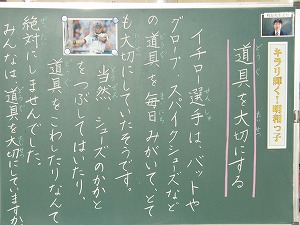 キラリ輝く！昭和っ子
道具を大切にする
どうぐ
たいせつ
イチロー選手は、バットや
せんしゅ
グローブ・スパイクシューズなど
の道具を毎日みがいて、とて
も大切にしていたそうです。
当然、シューズのかかと
とうぜん
をつぶしてはいたり、
道具をこわしたりなんて
絶対にしませんでした。
ぜったい
みんなは道具を大切にしていますか